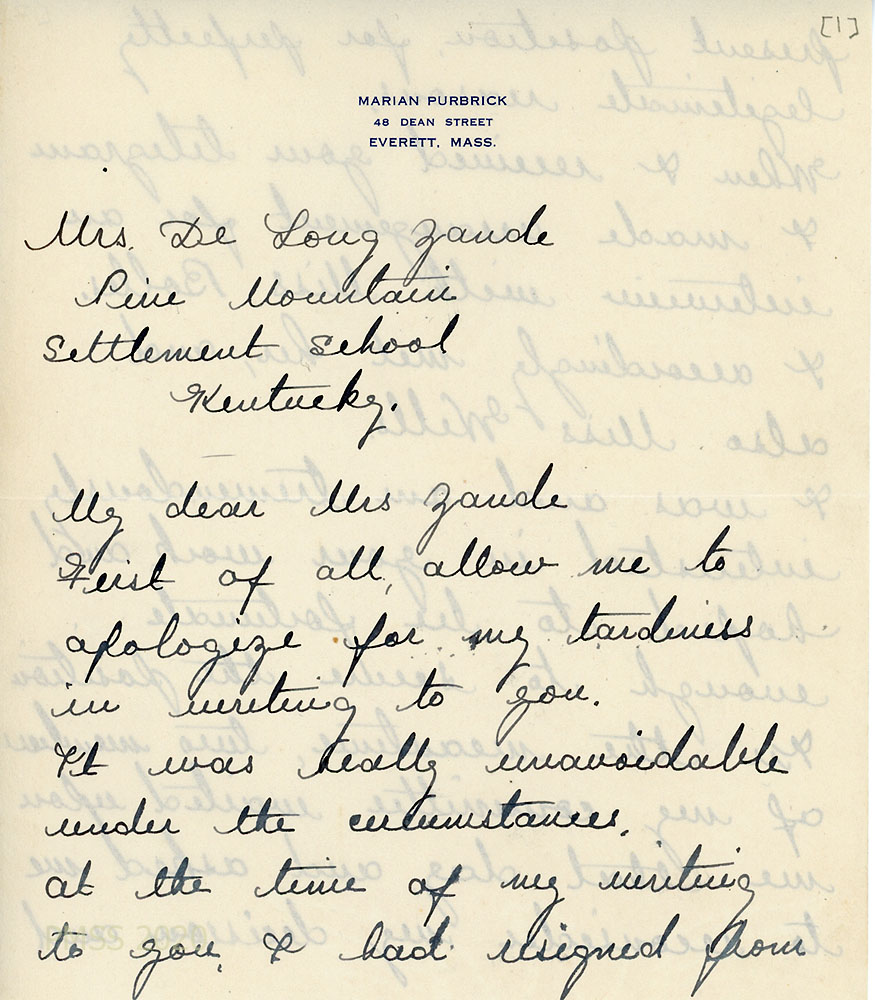 [1]
MARIAN PURBRICK
48 DEAN STREET
EVERETT, MASS.
Mrs. De Long Zande
Pine Mountain
Settlement School
Kentucky.
My dear Mrs Zande
First of all, allow me to
apologize for my tardiness
in writing to you.
It was really unavoidable
under the circumstances.
at the time of my writing
to you, I had resigned from